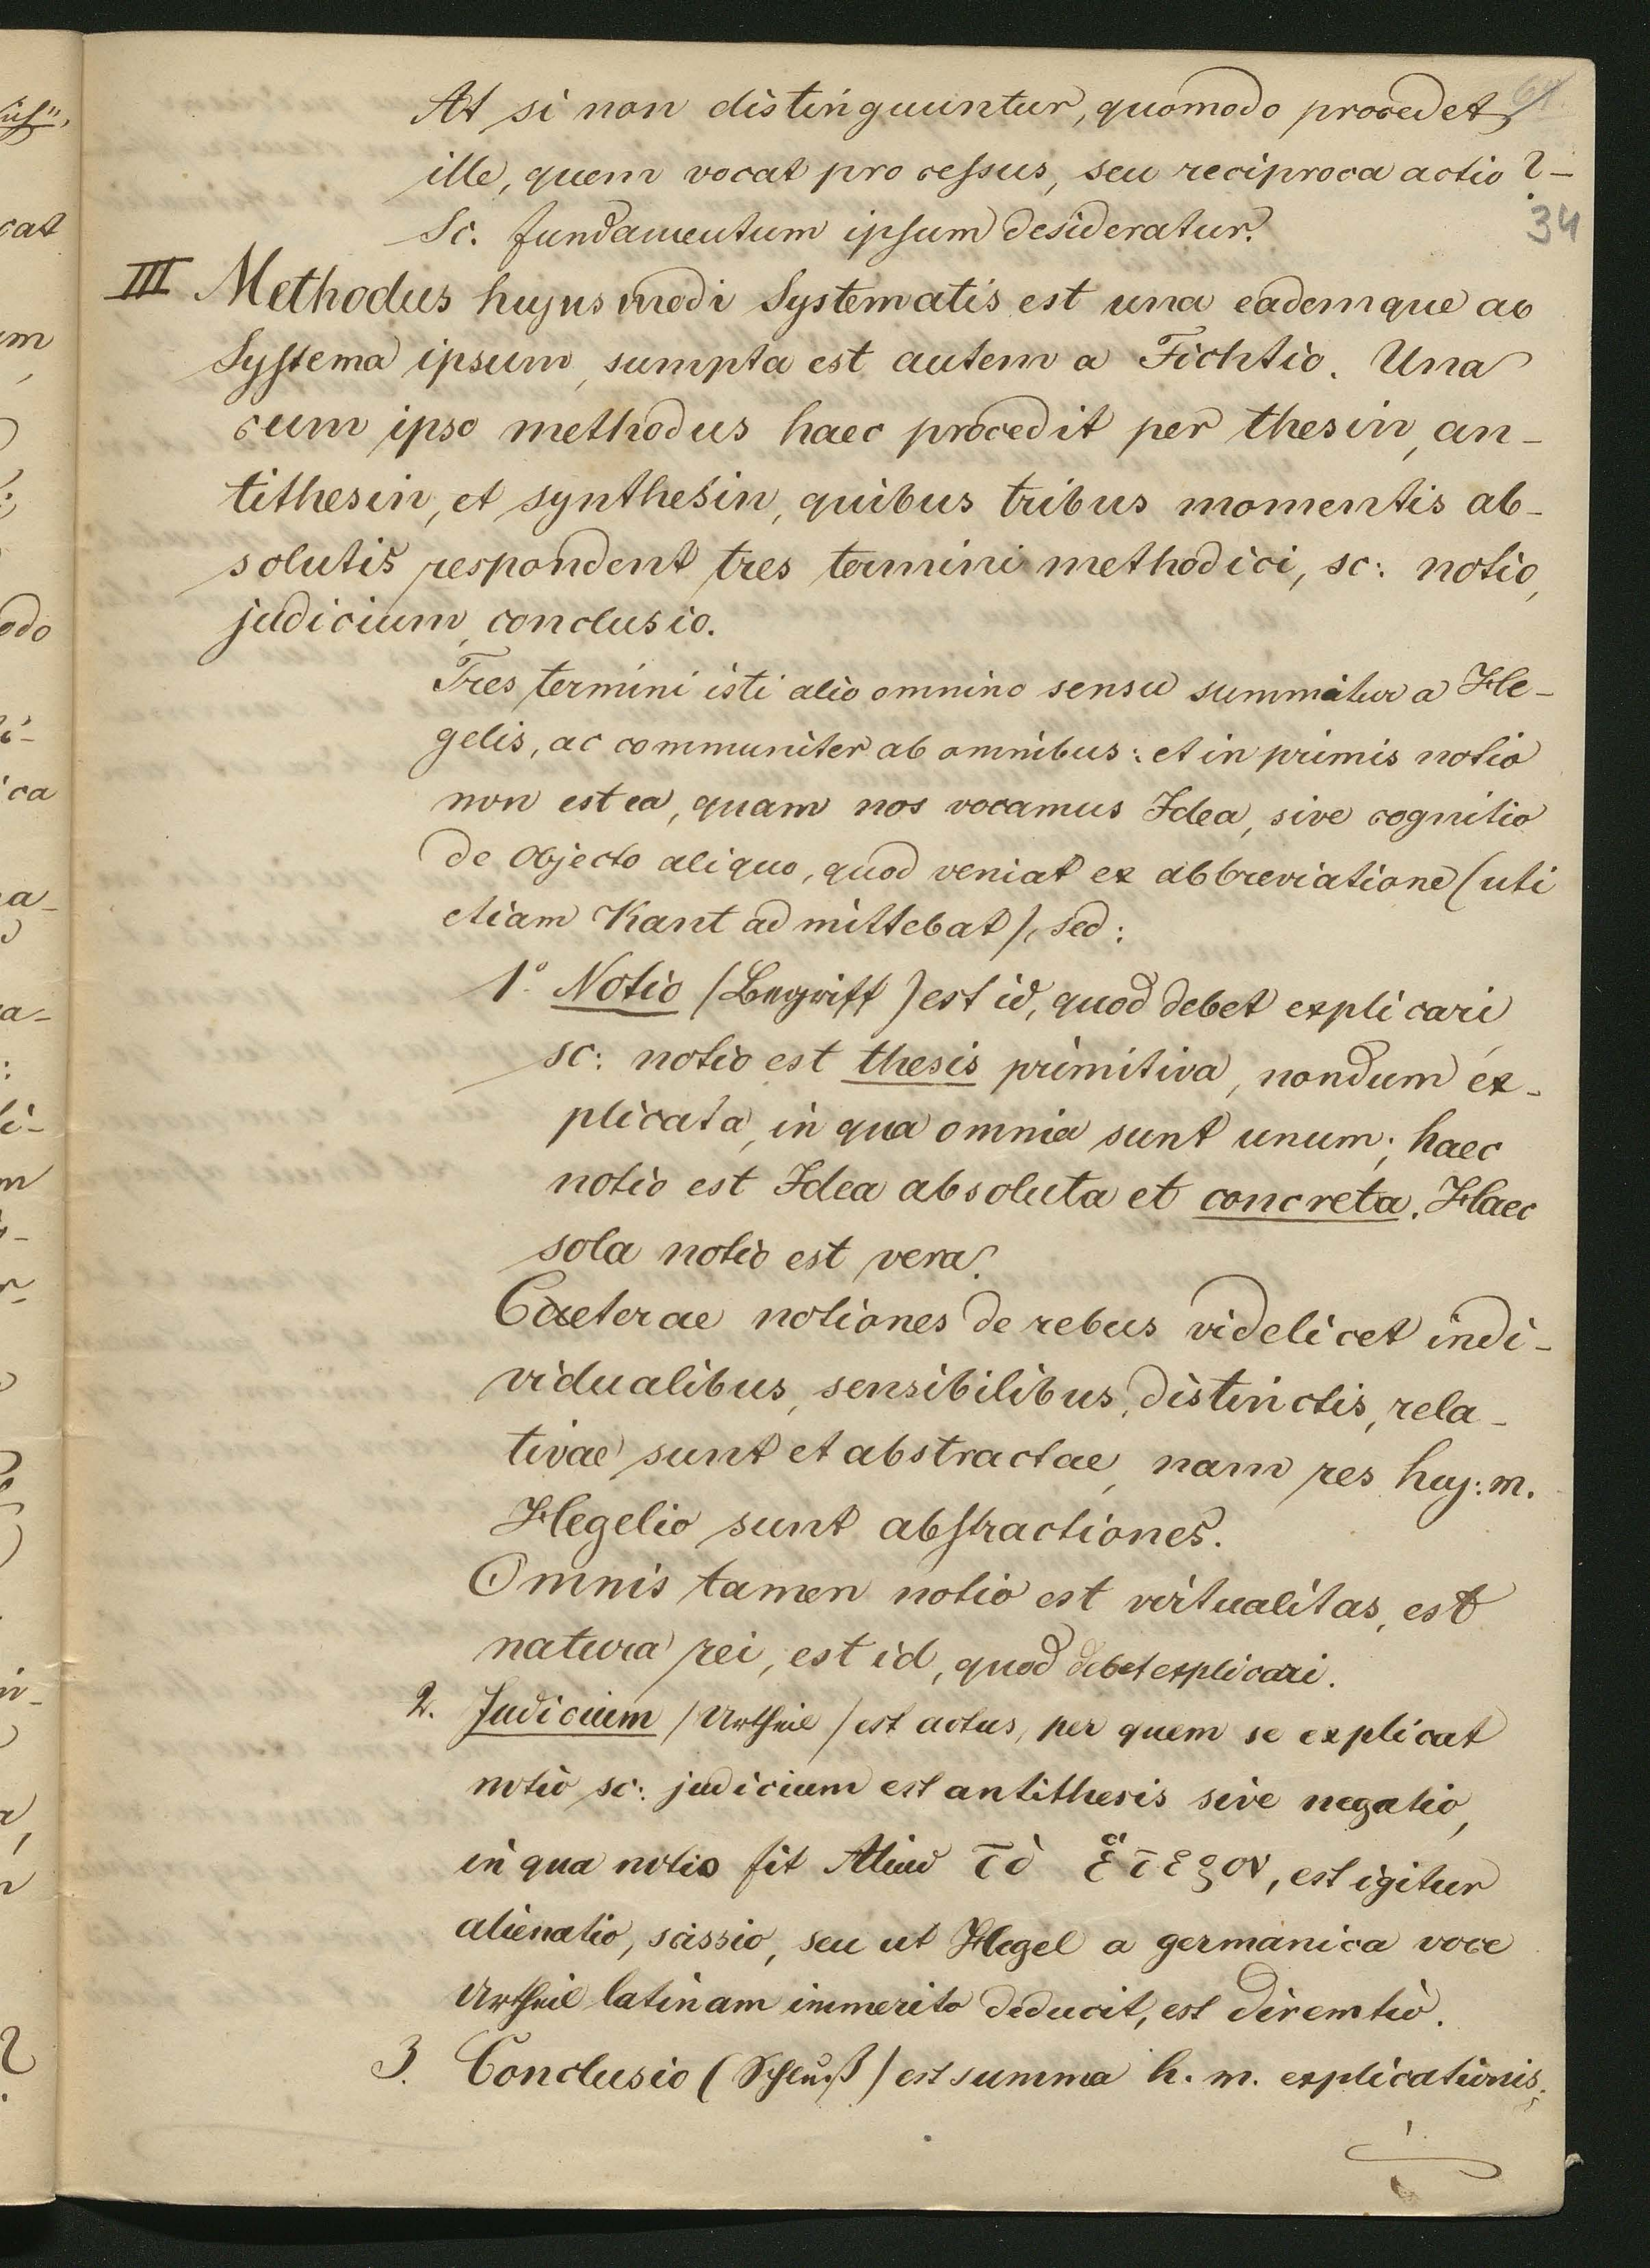 At si non distinguuntur, quomodo procedet
ille, quem vocat processus, seu reciproca actio? –
34
Sc. fundamentum ipsum desideratur.
III Methodus hujusmodi Systematis est una eademque ac
Systema ipsum, sumpta est autem a Fichtio. Una
cum ipso methodus haec procedit per thesin, an-
tithesin, et synthesin, quibus tribus momentis ab-
solutis respondent tres termini methodici, sc: notio,
judicium, conclusio.
Tres termini isti alio omnino sensu summitur a He-
gelis, ac communiter ab omnibus: et in primis notio
non est ea, quam nos vocamus Idea, sive cognitio
de Objecto aliquo, quod veniat ex abbreviatione (uti
etiam Kant admittebat), sed:
1º Notio (Begriff) est id, quod debet explicari
sc: notio est thesis primitiva, nondum ex-
plicata, in qua omnia sunt unum; haec
notio est Idea absoluta et concreta. Haec
sola notio est vera.
Caeterae notiones de rebus videlicet indi-
vidualibus, sensibilibus, distinctis, rela-
tivae sunt et abstractae, nam res huj: m.
Hegelio sunt abstractiones.
Omnis tamen notio est virtualitas, est
natura rei, est id, quod debet explicari.
2. Judicium (Urtheil) est actus, per quem se explicat
notio sc: judicium est antithesis sive negatio,
in qua notio fit Aliud τὸ ἕτερον, est igitur
alienatio, scissio, seu ut Hegel a germanica voce
Urtheil latinam immerito deducit, est diremtio.
3. Conclusio (Schluß) est summa h. m. explicationis;